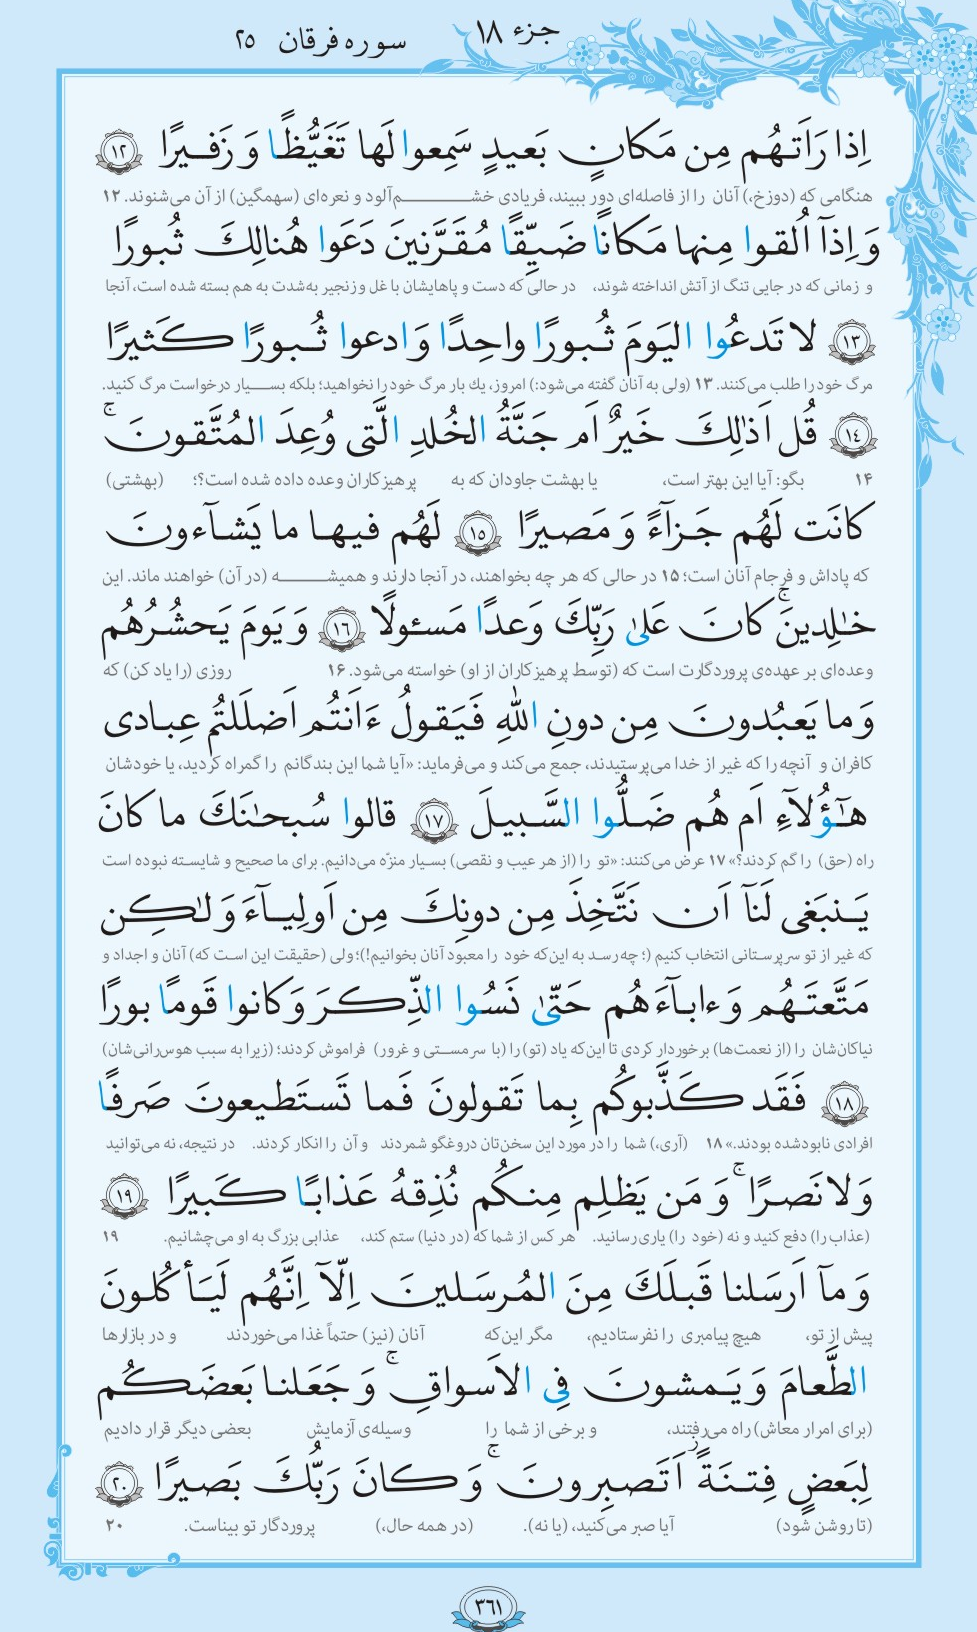 جزء ۱۸
سوره فرقان ۲۵
اِذا رَاَتهُم مِن مَكانٍ بَعيدٍ سَمِعوا لَها تَغَيُّظًا وَ زَفيرًا ﴿۱۲﴾
هنگامی که (دوزخ،) آنان را از فاصله‌ای دور ببیند، فریادی خشم‌آلود و نعره‌ای (سهمگین) از آن می‌شنوند. ۱۲
وَ اِذآ اُلقوا مِنها مَكانًا ضَيِّقًا مُقَرَّنينَ دَعَوا هُنالِكَ ثُبورًا
و زمانی که در جایی تنگ از آتش انداخته شوند، در حالی که دست و پاهایشان با غل و زنجیر به‌شدت به هم بسته شده است، آنجا
﴿۱۳﴾ لا تَدعُوا اليَومَ ثُبورًا واحِدًا وَ ادعوا ثُبورًا كَثيرًا
مرگ خود را طلب می‌کنند. ۱۳ (ولی به آنان گفته می‌شود:) امروز، یك بار مرگ خود را نخواهید؛ بلکه بسیار درخواست مرگ کنید.
﴿۱۴﴾ قُل اَذٰلِكَ خَيرٌ اَم جَنَّةُ الخُلدِ الَّتى وُعِدَ المُتَّقونَ ۚ
۱۴ بگو: آیا این بهتر است، یا بهشت جاودان که به پرهیزکاران وعده داده شده است؟؛ (بهشتی)
كانَت لَهُم جَزآءً وَ مَصيرًا ﴿۱۵﴾ لَهُم فيها ما يَشآءونَ
که پاداش و فرجام آنان است؛ ۱۵ در حالی که هر چه بخواهند، در آنجا دارند و همیشه (در آن) خواهند ماند. این
خٰلِدينَ ۚ كانَ عَلىٰ رَبِّكَ وَعدًا مَسئولًا ﴿۱۶﴾ وَ يَومَ يَحشُرُهُم
وعده‌ای بر عهده‌ی پروردگارت است که (توسط پرهیزکاران از او) خواسته می‌شود. ۱۶ روزی (را یاد کن) که
وَ ما يَعبُدونَ مِن دونِ اللّٰهِ فَيَقولُ ءَاَنتُم اَضلَلتُم عِبادى
کافران و آنچه را که غیر از خدا می‌پرستیدند، جمع می‌کند و می‌فرماید: «آیا شما این بندگانم را گمراه کردید، یا خودشان
هٰٓؤُلآءِ اَم هُم ضَلُّوا السَّبيلَ ﴿۱۷﴾ قالوا سُبحٰنَكَ ما كانَ
راه (حق) را گم کردند؟» ۱۷ عرض می‌کنند: «تو را (از هر عیب و نقصی) بسیار منزّه می‌دانیم. برای ما صحیح و شایسته نبوده است
يَنبَغى لَنآ اَن نَتَّخِذَ مِن دونِكَ مِن اَولِيآءَ وَ لٰكِن
که غیر از تو سرپرستانی انتخاب کنیم (؛ چه رسد به این‌که خود را معبود آنان بخوانیم!)؛ ولی (حقیقت این است که) آنان و اجداد و
مَتَّعتَهُم وَ ءابآءَهُم حَتّىٰ نَسُوا الذِّكرَ وَ كانوا قَومًا بورًا
نیاکان‌شان را (از نعمت‌ها) برخوردار کردی تا این‌که یاد (تو) را (با سرمستی و غرور) فراموش کردند؛ (زیرا به سبب هوس‌رانی‌شان)
﴿۱۸﴾ فَقَد كَذَّبوكُم بِما تَقولونَ فَما تَستَطيعونَ صَرفًا
افرادی نابودشده بودند.» ۱۸ (آری،) شما را در مورد این سخن‌تان دروغگو شمردند و آن را انکار کردند. در نتیجه، نه می‌توانید
وَ لا نَصرًا ۚ وَ مَن يَظلِم مِنكُم نُذِقهُ عَذابًا كَبيرًا ﴿۱۹﴾
(عذاب را) دفع کنید و نه (خود را) یاری رسانید. هر کس از شما که (در دنیا) ستم کند، عذابی بزرگ به او می‌چشانیم. ۱۹
وَ مآ اَرسَلنا قَبلَكَ مِنَ المُرسَلينَ اِلّآ اِنَّهُم لَيَأكُلونَ
پیش از تو، هیچ پیامبری را نفرستادیم، مگر این‌که آنان (نیز) حتماً غذا می‌خوردند و در بازارها
الطَّعامَ وَ يَمشونَ فِى الاَسواقِ ۚ وَ جَعَلنا بَعضَكُم
(برای امرار معاش) راه می‌رفتند، و برخی از شما را وسیله‌ی آزمایش بعضی دیگر قرار دادیم
لِبَعضٍ فِتنَةً ز اَتَصبِرونَ ۚ وَ كانَ رَبُّكَ بَصيرًا ﴿۲۰﴾
(تا روشن شود) آیا صبر می‌کنید، (یا نه). (در همه حال،) پروردگار تو بیناست. ۲۰
۳۶۱